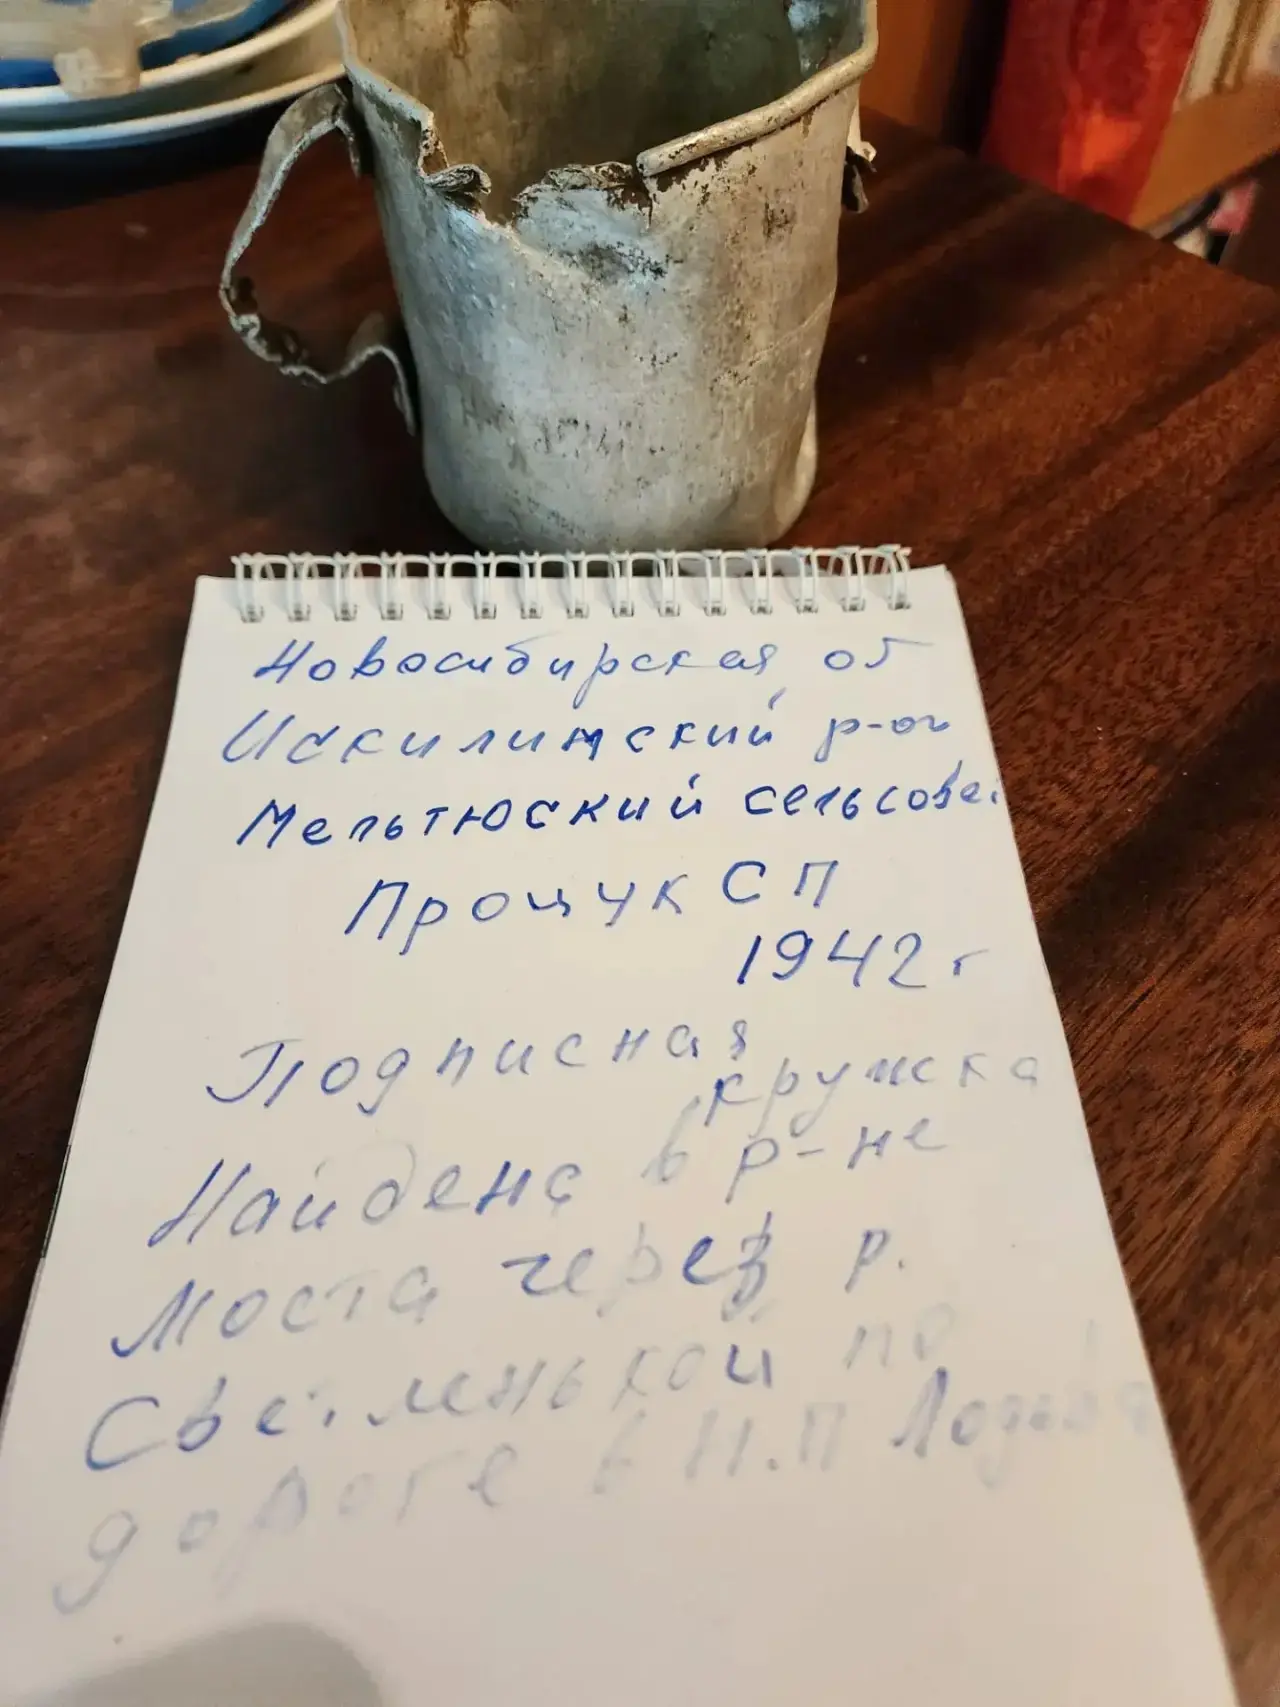 Новосибирская об
Искилимский р-он
Мельтюский сельсове
Процук СП
1942 г
Подписная
кружка
Найдена в р-не
моста через р.
по
дороге в Н.П